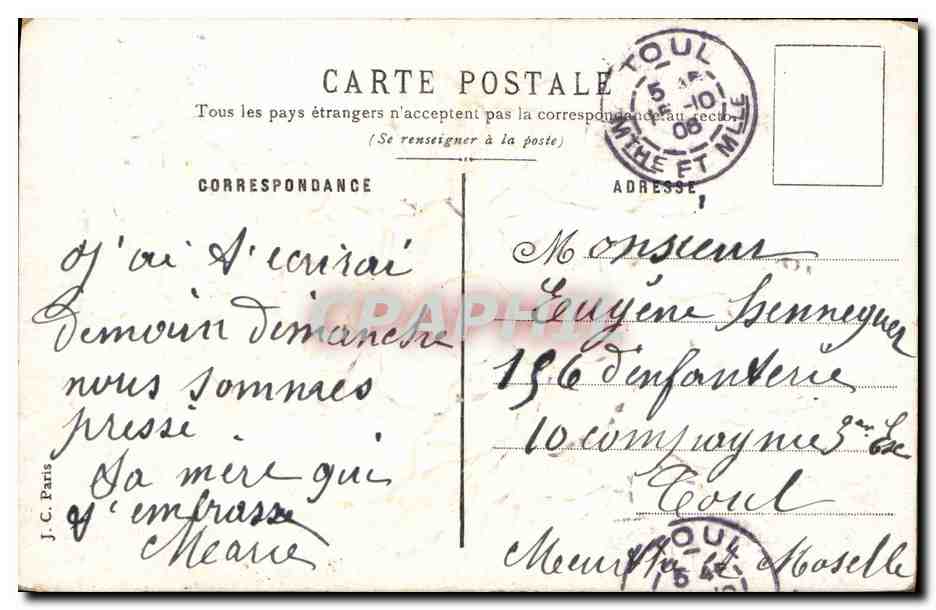 CARTE POSTALE
Tous les pays étrangers n'acceptent pas la correspondance au recto.
(Se renseigner à la poste)
CORRESPONDANCE
j'ai t'ecrirai
demain dimanche
nous sommes
pressé
Ta mère qui
t'embrasse
Marie
J. C. Paris
ADRESSE
Monsieur
Eugéne Henneguer
156 d'infanterie
10 compagnie 3
Toul
Meurthe et Moselle
TOUL
5 -10
08
MTHE ET MLLE
TOUL
CPAPHIL